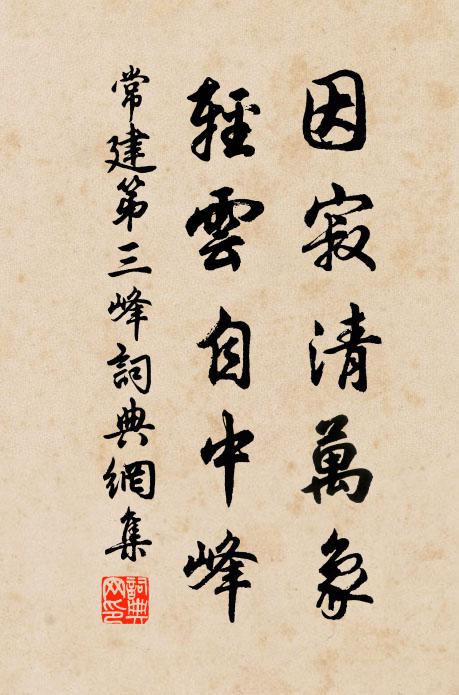 因寂清萬象
輕雲自中峰
常建第三峰詞典網集
詞典网印